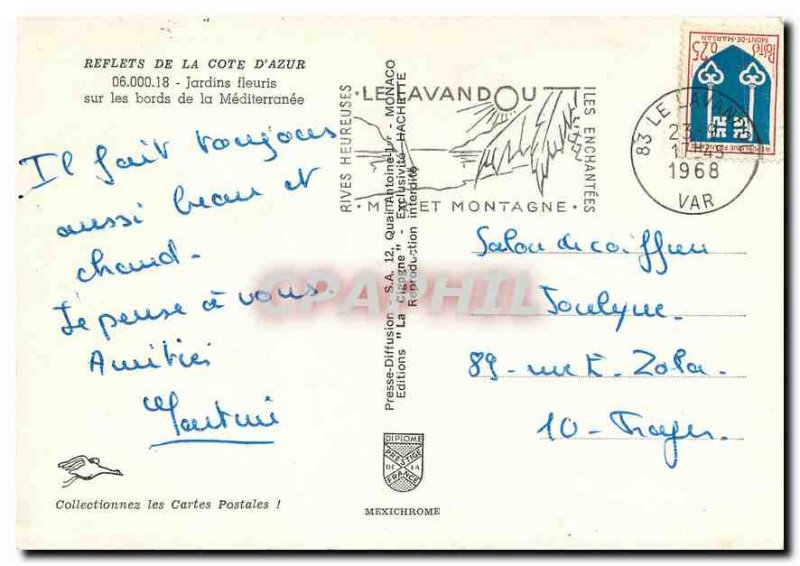 REFLETS DE LA COTE D'AZUR
06.000.18 - Jardins fleuris
sur les bords de la Méditerranée
Il fait toujours
aussi beau et
chaud -
Je pense à vous
Amitiés
Martine
Collectionnez les Cartes Postales !
Presse-Diffusion S.A. 12, Quai Antoine-1er - MONACO
Editions "La Cigogne" - Exclusivité HACHETTE
Reproduction interdite
DIPLOME
PRESTIGE
DE LA
FRANCE
MEXICHROME
RIVES HEUREUSES
LE LAVANDOU
ILES ENCHANTÉES
MER ET MONTAGNE
83 LE LAVANDOU
17H45
1968
VAR
0,25
POSTES
MONT-DE-MARSAN
CPAPHIL
Salon de coiffure
Jocelyne
89 - rue E. Zola -
10 - Troyes -